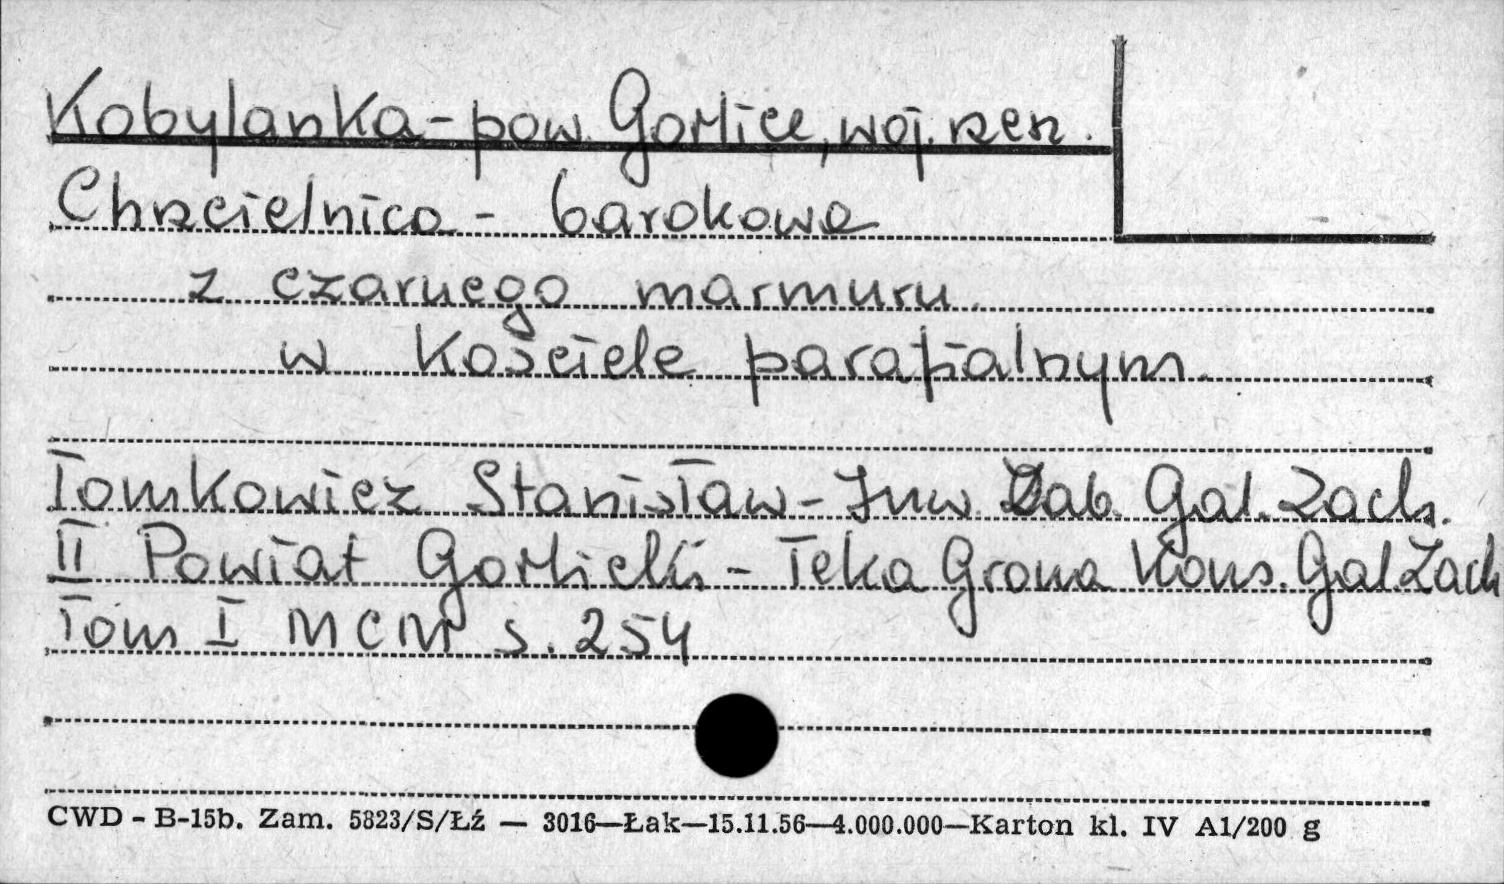 Kobylanka - pow. Gorlice, woj. rzesz.
Chrzcielnica - barokowa
z czarnego marmuru
w kościele parafialnym.
Tomkowicz Stanisław - Inw. Zab. Gal. Zach.
II Powiat Gorlicki - Teka Grona Kons. Gal. Zach
Tom I MCM s. 254
CWD - B-15b. Zam. 5823/S/Łź — 3016—Łak—15.11.56—4.000.000—Karton kl. IV A1/200 g